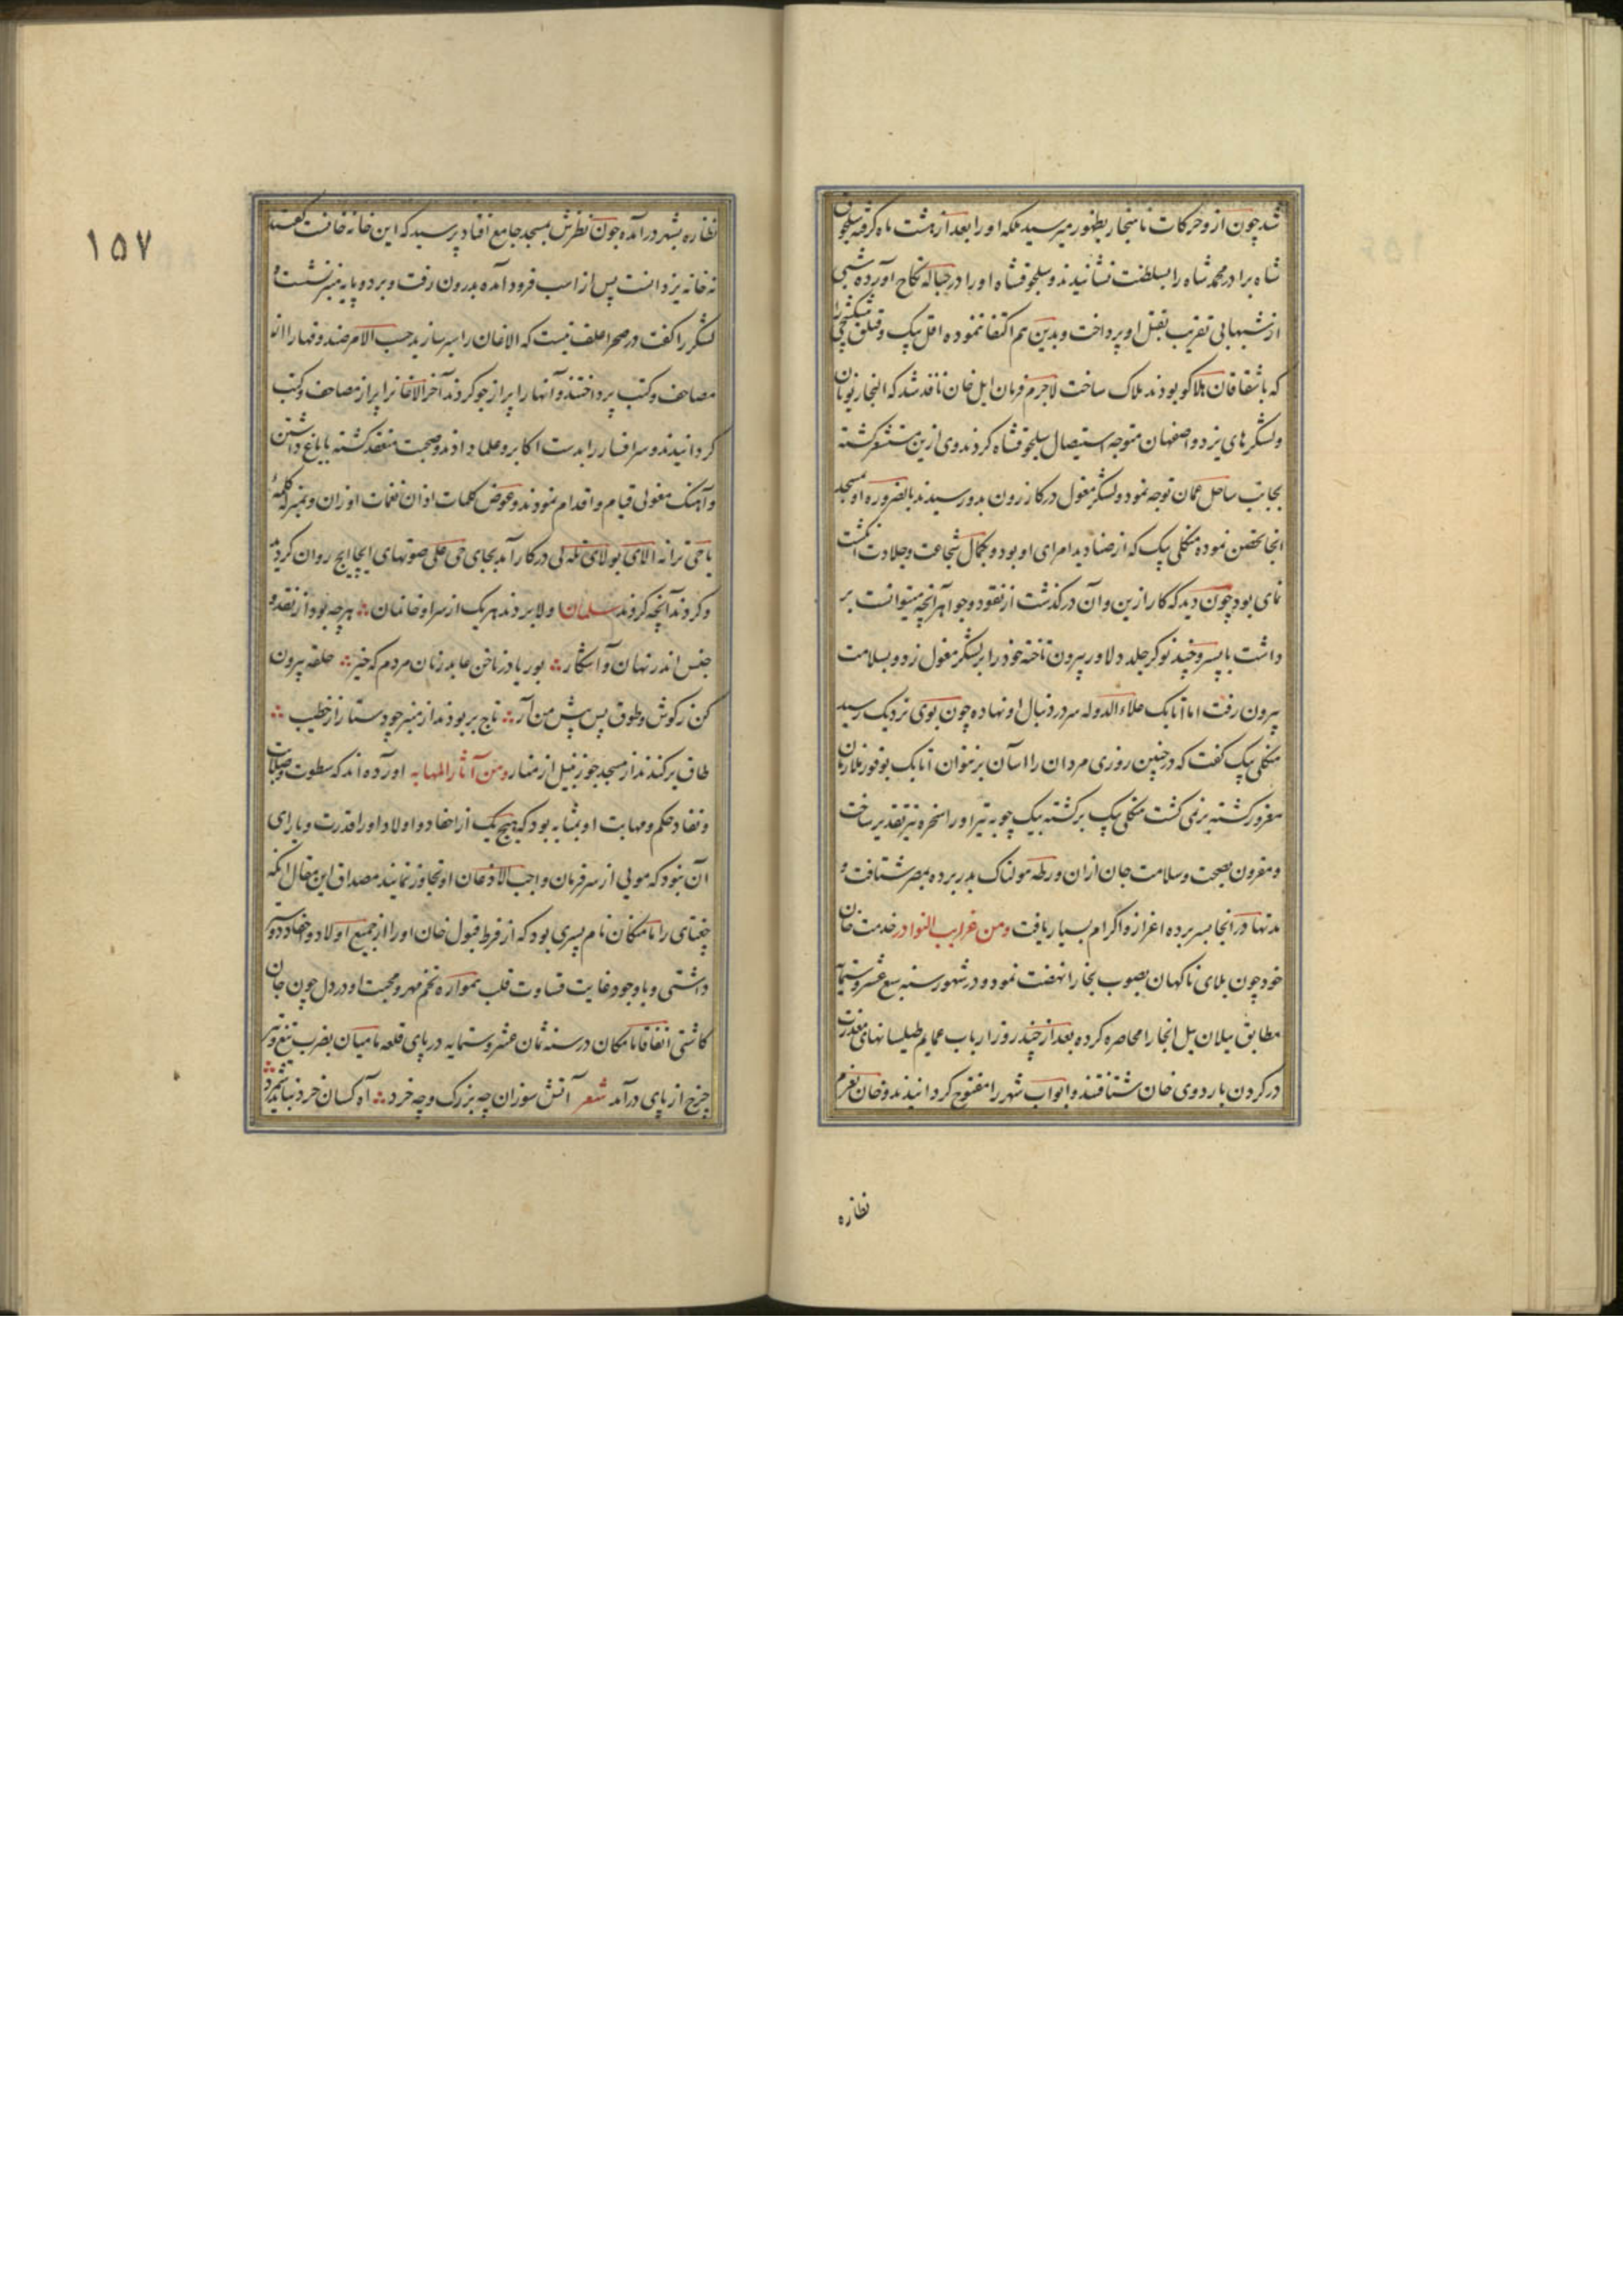 شد چون ازو حرکات ناهنجار بظهور میرسید ملکه او را بعد از هشت ماه گرفته سلجوق
شاه برادر محمد شاه را بسلطنت نشانیدند و سلجوقشاه او را در حباله نکاح آورده شبی
از شبهابی تقریب بقتل او پرداخت و بدین هم اکتفا ننموده اقل بیک و قتلق
که باشقاقان هلاکو بودند هلاک ساخت لاجرم فرمان ایل خان نافذ شد که التجار نویان
و لشکرهای یزد و اصفهان متوجه استیصال سلجوقشاه کردند وی ازین مستشعر کشته
بجانب ساحل عمان توجه نمود و لشکر مغول در کازرون بدو رسیدند بالضروره او بمسجد
انجا تحصن نموده منکلی بیک که از صنادید امرای او بود و بکمال شجاعت و جلادت انکشت
نمای بود چون دید که کار ازین و آن در کذشت از نقود و جواهر آنچه میتوانست بر
داشت با پسر و چند نوکر جلد دلاور بیرون تاخته خود را بر لشکر مغول زد و بسلامت
بیرون رفت اما اتابک علاء الدوله سر در دنبال او نهاده چون بوی نزدیک رسید
منکلی بیک کفت که در چنین روزی مردان را آسان بر نتوان اتابک بوفور ملازمان
مغرور کشته بزی کشت منکلی بیک برکشته بیک چوبه تیر او را سخره تیر تقدیر ساخت
و مقرون بصحت و سلامت جان ازان ورطه هولناک بدر برده بمصر شتافت و
مدتها در انجا بسر برده اعزاز و اکرام بسیار یافت ومن غرایب النوادر خدمت خان
خود چون بلای ناکهان بصوب بخارا نهضت نمود و در شهور سنه سبع عشر و ستمایه
مطابق ییلان ییل انجا را محاصره کرده بعد از چند روز ارباب عمایم طیلسانهای معذرت
در کردن باردوی خان شتافتند و ابواب شهر را مفتوح کردانیدند و خان بعزم
نظاره
۱۵۷
نظاره بشهر درآمده چون نظرش بمسجد جامع افتاد پرسید که این خانه خانست گفتند
نه خانه یزدانست پس از اسب فرود آمده بدرون رفت و بر دو پایه منبر نشست و
لشکر را کفت در صحرا علف نیست که الاغان را سیر سازید حسب الامر صندوقها را از
مصاحف و کتب پرداختند و آنها را پر از جو کردند آخر الاغانرا پر از مصاحف و کتب
کردانیدند و سر افسار را بدست اکابر و علما دادند و صحبت منعقد کشته یایاغ داشتن
و آهنک مغولی قیام و اقدام نمودند و عوض کلمات اذان نغمات اوزان و بمنبر کلمهٔ
یاحی ترانه الای بولای تله لی در کار آمد بجای حی علی صوتهای ایچا ایچ روان کردید
و کردند آنچه کردند سلمان اولا بردند هر یک از سرا و خانمان هرچه بود از نقد و
جنس اندر نهان و آشکار بوریا در ناخن عابد زنان مردم که خیز حلقه بیرون
کن ز کوش و طوق پس پیش من آر تاج بربودند از منبر چو دستار از خطیب
طاق برکندند از مسجد چو زنبیل از منار ومن آثار المهابه آورده اند که سطوت و صلابت
و نفاد حکم و مهابت او بمثابه بود که هیچ یک از احفاد و اولاد او را قدرت و یارای
آن نبود که مویی از سر فرمان واجب الاذعان او تجاوز نمایند مصداق این مقال انکه
چغتای را مامکان نام پسری بود که از فرط قبول خان او را از جمیع اولاد و احفاد دوست
داشتی و باوجود غایت قساوت قلب همواره تخم مهر و محبت او در دل چون جان
کاشتی اتفاقا مامکان در سنه ثمان عشر و ستمایه در پای قلعه بامیان بضرب تیغ و تیر
چرخ از پای درآمد شعر آتش سوزان چه بزرک و چه خرد آه کسان خرد نباید شمرد